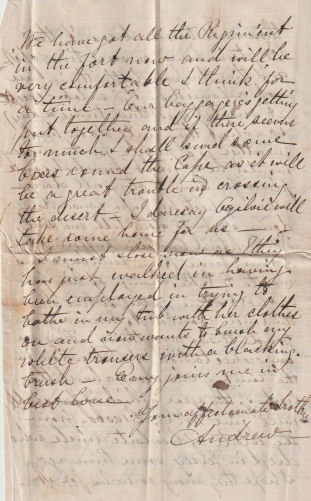 We have got all the Regiment
in the fort now and will be
very comfortable I think for
a time — Our baggage is getting
put together and if there seems
too much I shall send some
boxes round the Cape as it will
be a great trouble in crossing
the desert — I daresay Ogilvie will
take some home for us —
I must close now as
has just walked in having
been employed in trying to
bathe in my tub with her clothes
on and now wants to brush my
white trousers with a blacking
brush — joins me in
best love
Your affectionate brother
Andrew